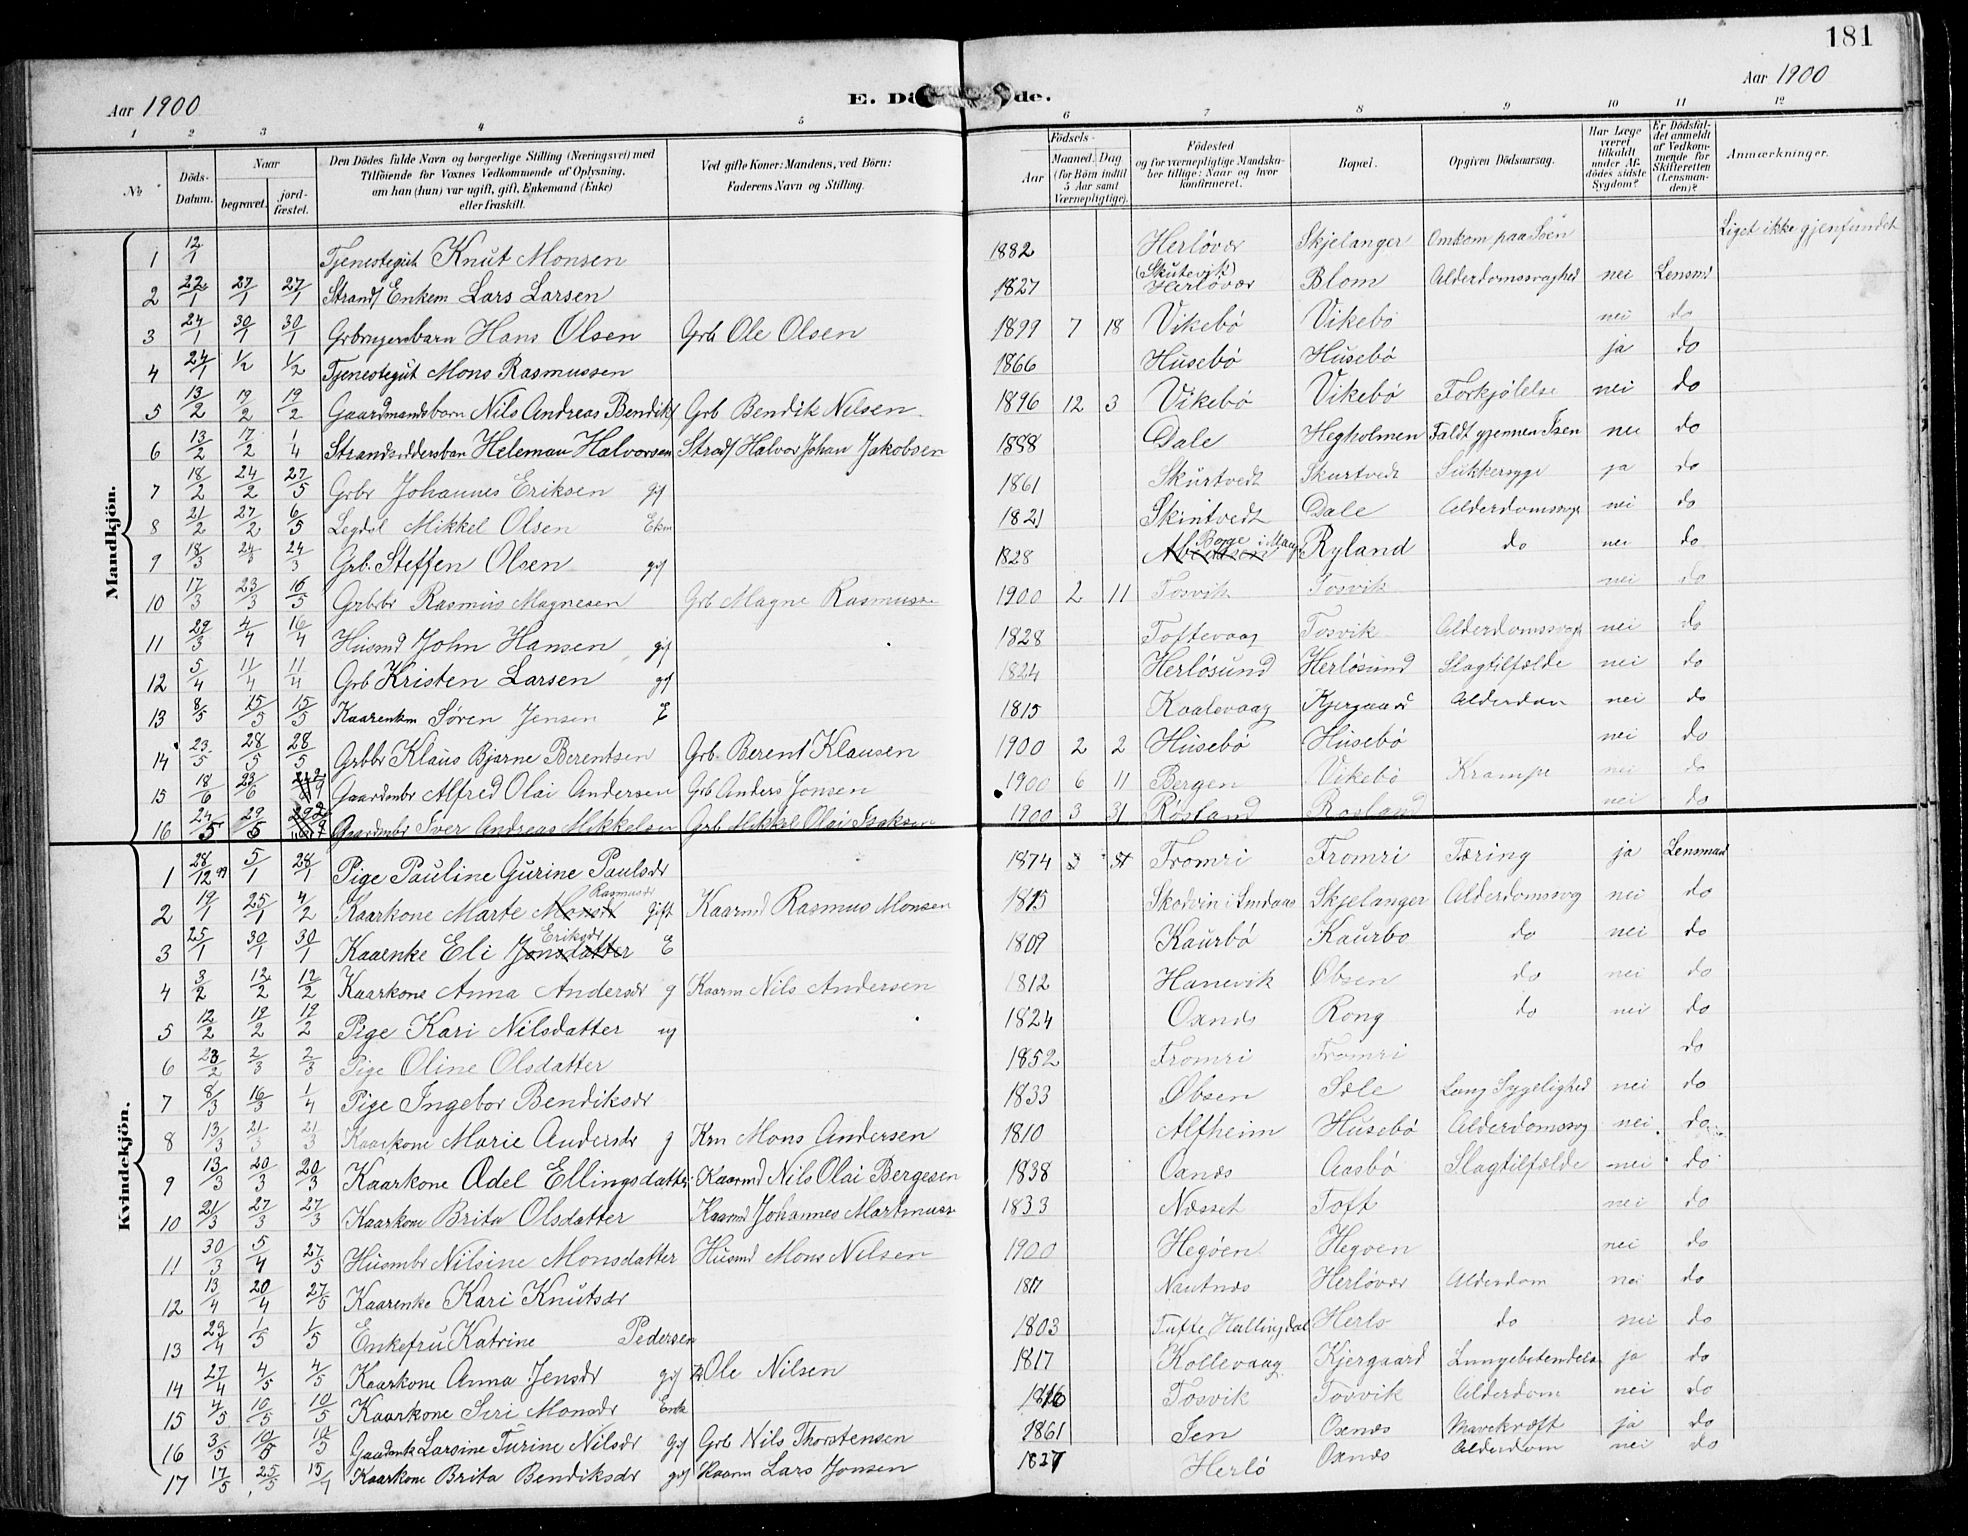 181
Aar 1900
E. Dö de.
Aar 1900
1 2 3 4 5 6 7 8 9 10 11 12
No
Döds-Datum.
Naar
begravet.
jord-fæstet.
Den Dödes fulde Navn og borgerlige Stilling (Næringsvei) med
Tilföiende for Voxnes Vedkommende af Oplysning,
om han (hun) var ugift, gift, Enkemand (Enke)
eller fraskilt.
Ved gifte Koner: Mandens, ved Börn:
Faderens Navn og Stilling.
Födsels-
Aar
Maaned. Dag
(for Börn indtil
5 Aar samt
Værnepligtige).
Födested
og for værnepligtige Mandska-
ber tillige: Naar og hvor
konfirmeret.
Bopæl.
Opgiven Dödsaarsag.
Har Læge
været
tilkaldt
under Af-
dödes sidste
Sygdom?
Er Dödsfal-
det anmeldt
af Vedkom-
mende for
Skifteretten
(Lensman-
den)?
Anmærkninger.
Mandkjön.
1 12/1 Tjenestegut Knut Monsen 1882 Herløvær Skjelanger Omkom paa Søen Liget ikke gjenfundet
2 22/1 27/1 27/1 Strands Enkem Lars Larsen 1827 (Skutevik) Herløvær Blom Alderdomssvaghed nei Lensmd
3 24/1 30/1 30/1 Grbrugersbarn Hans Olsen Grb Ole Olsen 1899 7 18 Vikebø Vikebø nei do
4 24/1 1/2 1/2 Tjenestegut Mons Rasmussen 1866 Husebø Husebø ja do
5 13/2 19/2 19/2 Gaardmandsbarn Nils Andreas Bendiks Grb Bendik Nilsen 1896 12 3 Vikebø Vikebø Forkjølelse nei do
6 13/2 17/2 1/4 Strandsiddersbarn Heleman Halvorsen Strads Halvor Johan Jakobsen 1888 Dale Hegholmen Faldt gjennem Isen nei do
7 18/2 24/2 27/5 Grbr Johannes Eriksen gif 1861 Skurtvedt Skurtvedt Sukkersyge ja do
8 21/2 27/2 6/5 Legdsl Mikkel Olsen Ekm 1821 Skintvedt Dale Alderdomssvgh nei do
9 18/3 24/3 24/3 Grb. Steffen Olsen gif 1828 Boge i Mang Ryland do nei do
10 17/3 23/3 16/5 Grbrbr Rasmus Magnesen Grb Magne Rasmuss 1900 2 11 Tosvik Tosvik nei do
11 29/3 4/4 16/4 Husmd John Hansen gif 1828 Toftevaag Tosvik Alderdomssvgh nei do
12 5/4 11/4 11/4 Grb Kristen Larsen gf 1824 Herløsund Herløsund Slagtilfælde nei do
13 8/5 15/5 15/5 Kaarenkm Søren Jensen E 1815 Kaalevaag Kjergaard Alderdom nei do
14 23/5 28/5 28/5 Grbbr Klaus Bjarne Berentsen Grb. Berent Klausen 1900 2 2 Husebø Husebø nei do
15 18/6 23/6 Gaardmbr Alfred Olai Andersen Grb Anders Jonsen 1900 6 11 Bergen Vikebø Krampe nei do
16 24/5 29/5 Gaardmbr Iver Andreas Mikkelsen Grb Mikkel Olai Isaksen 1900 3 31 Røsland Rosland nei do
Kvindekjön.
1 28/12 99 5/1 28/1 Pige Pauline Gurine Paulsdr 1874 Fromri Fromri Tæring ja Lensmand
2 19/1 25/1 4/2 Kaarkone Marte Monsdr Rasmusdr Gift Kaarmd Rasmus Monsen 1815 Skodvin i Lindaas Skjelanger Alderdomssvag nei do
3 25/1 30/1 30/1 Kaarenke Eli Jonsdatter Eriksdr E 1809 Kaurbø Kaurbo do nei do
4 3/2 12/2 12/2 Kaarkone Anna Andersdr g Kaarm Nils Andersen 1812 Hanevik Øbsen do nei do
5 12/2 19/2 19/2 Pige Kari Nilsdatter ug 1824 Oxnæs Rong do nei do
6 23/2 2/3 2/3 Pige Oline Olsdatter 1852 Fromri Fromri do
7 8/3 16/3 1/4 Pige Ingebor Bendiksdr 1833 Øbsen Sæle Lung Sygelighed nei do
8 13/3 21/3 21/3 Kaarkone Marie Andersdr g Krm Mons Andersen 1810 Alfheim Husebø Alderdomssvg nei do
9 13/3 20/3 20/3 Kaarkone Adel Ellingsdatter Kaarmd Nils Olai Bergesen 1838 Oxnæs Aasbø Slagtilfælde nei do
10 21/3 27/3 27/3 Kaarkone Brita Olsdatter Kaarmd Johannes Martinuss 1833 Næsset Toft nei do
11 30/3 5/4 27/5 Husmbr Nilsine Monsdatter Husmd Mons Nilsen 1900 Hegøen Hegøen nei do
12 13/4 20/4 27/5 Kaarenke Kari Knutsdr 1817 Nautnæs Herløvær Alderdom nei do
13 23/4 1/5 1/5 Enkefru Katrine Pedersen 1803 Tufte Hallingdal Herlø do nei do
14 27/4 4/5 4/5 Kaarkone Anna Jensdr gif Ole Nilsen 1817 Kollevaag Kjergaard Lungebetendelse ja do
15 4/5 10/5 10/5 Kaarkone Siri Monsdr Enk 1816 Tosvik Tosvik Alderdom nei do
16 3/5 10/5 10/5 Larsine Turine Nilsdr Gif Grb Nils Thorstensen 1861 Sen Oxnæs Mavekræft ja do
17 17/5 25/5 15/7 Kaarkone Brita Bendiksdr gif Kaarm Lars Jonsen 1827 Herlø Oxnæs Alderdom nei do